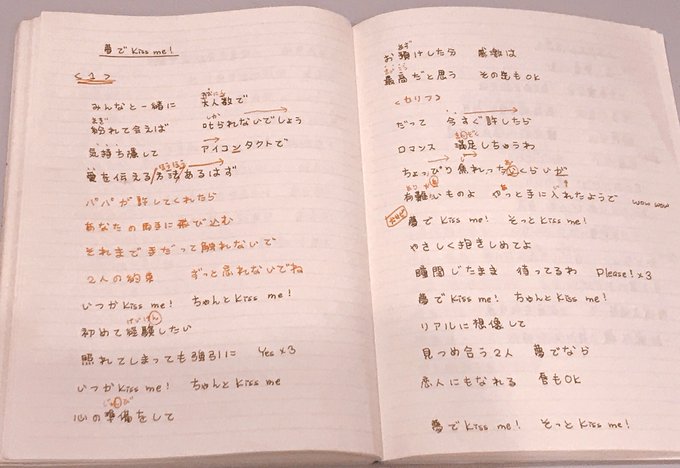 夢でKiss me!
<1>
みんなと一緒に 大人数で
紛れて会えば 叱られないでしょう
気持ち隠して アイコンタクトで
愛を伝える方法あるはず
パパが許してくれたら
あなたの両手に飛び込む
それまで手だって触れないで
2人の約束 ずっと忘れないでね
いつかKiss me! ちゃんとKiss me!
初めて経験したい
照れてしまっても強引に Yes×3
いつかKiss me! ちゃんとKiss me
心の準備をして
お預けした分 感激は
最高だと思う その先もOK
だって 今すぐ許したら
ロマンス 満足しちゃうわ
ちょっぴり焦れったいくらいが
有難いものよ やっと手に入れたようで wow wow
夢でKiss me! そっとKiss me!
やさしく抱きしめてよ
瞳閉じたまま 待ってるわ Please!×3
夢でKiss me! ちゃんとKiss me!
リアルに想像して
見つめ合う2人 夢でなら
恋人にもなれる 唇もOK
夢でKiss me! そっとKiss me!